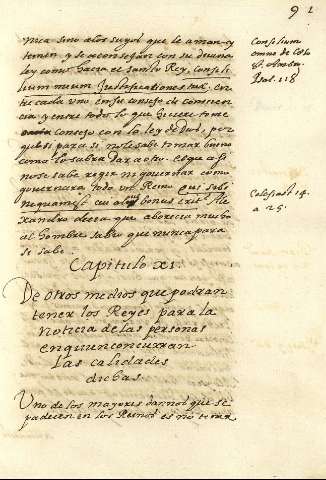 91
nica sino a los suyos que le aman y
temen y se aconsejan con su divina
ley como hacia el santo Rey, Consili
lium meum Justificationes tuæ, en
tre cada uno en su consejo de conscien
cia y entre todo lo que hiciere tome
consejo con la ley de Dios, por
que si para si, no le sabe tomar bueno
como lo sabra dar a otro, el que a si
no se sabe regir ni governar como
governara todo un Reino Cui sibi
nequam est cui alii bonus erit Ale
xandro decia que aborecia mucho
al hombre sabio que nunca para
si sabe.
Consilium
Psal. 118
14.
a 25.
Capitulo XI.
De otros medios que podran
tener los Reyes para la
noticia de las personas
en quien concurran
las calidades
dichas.
Uno de los mayores dannos que se
padecen en los Reinos es no tener